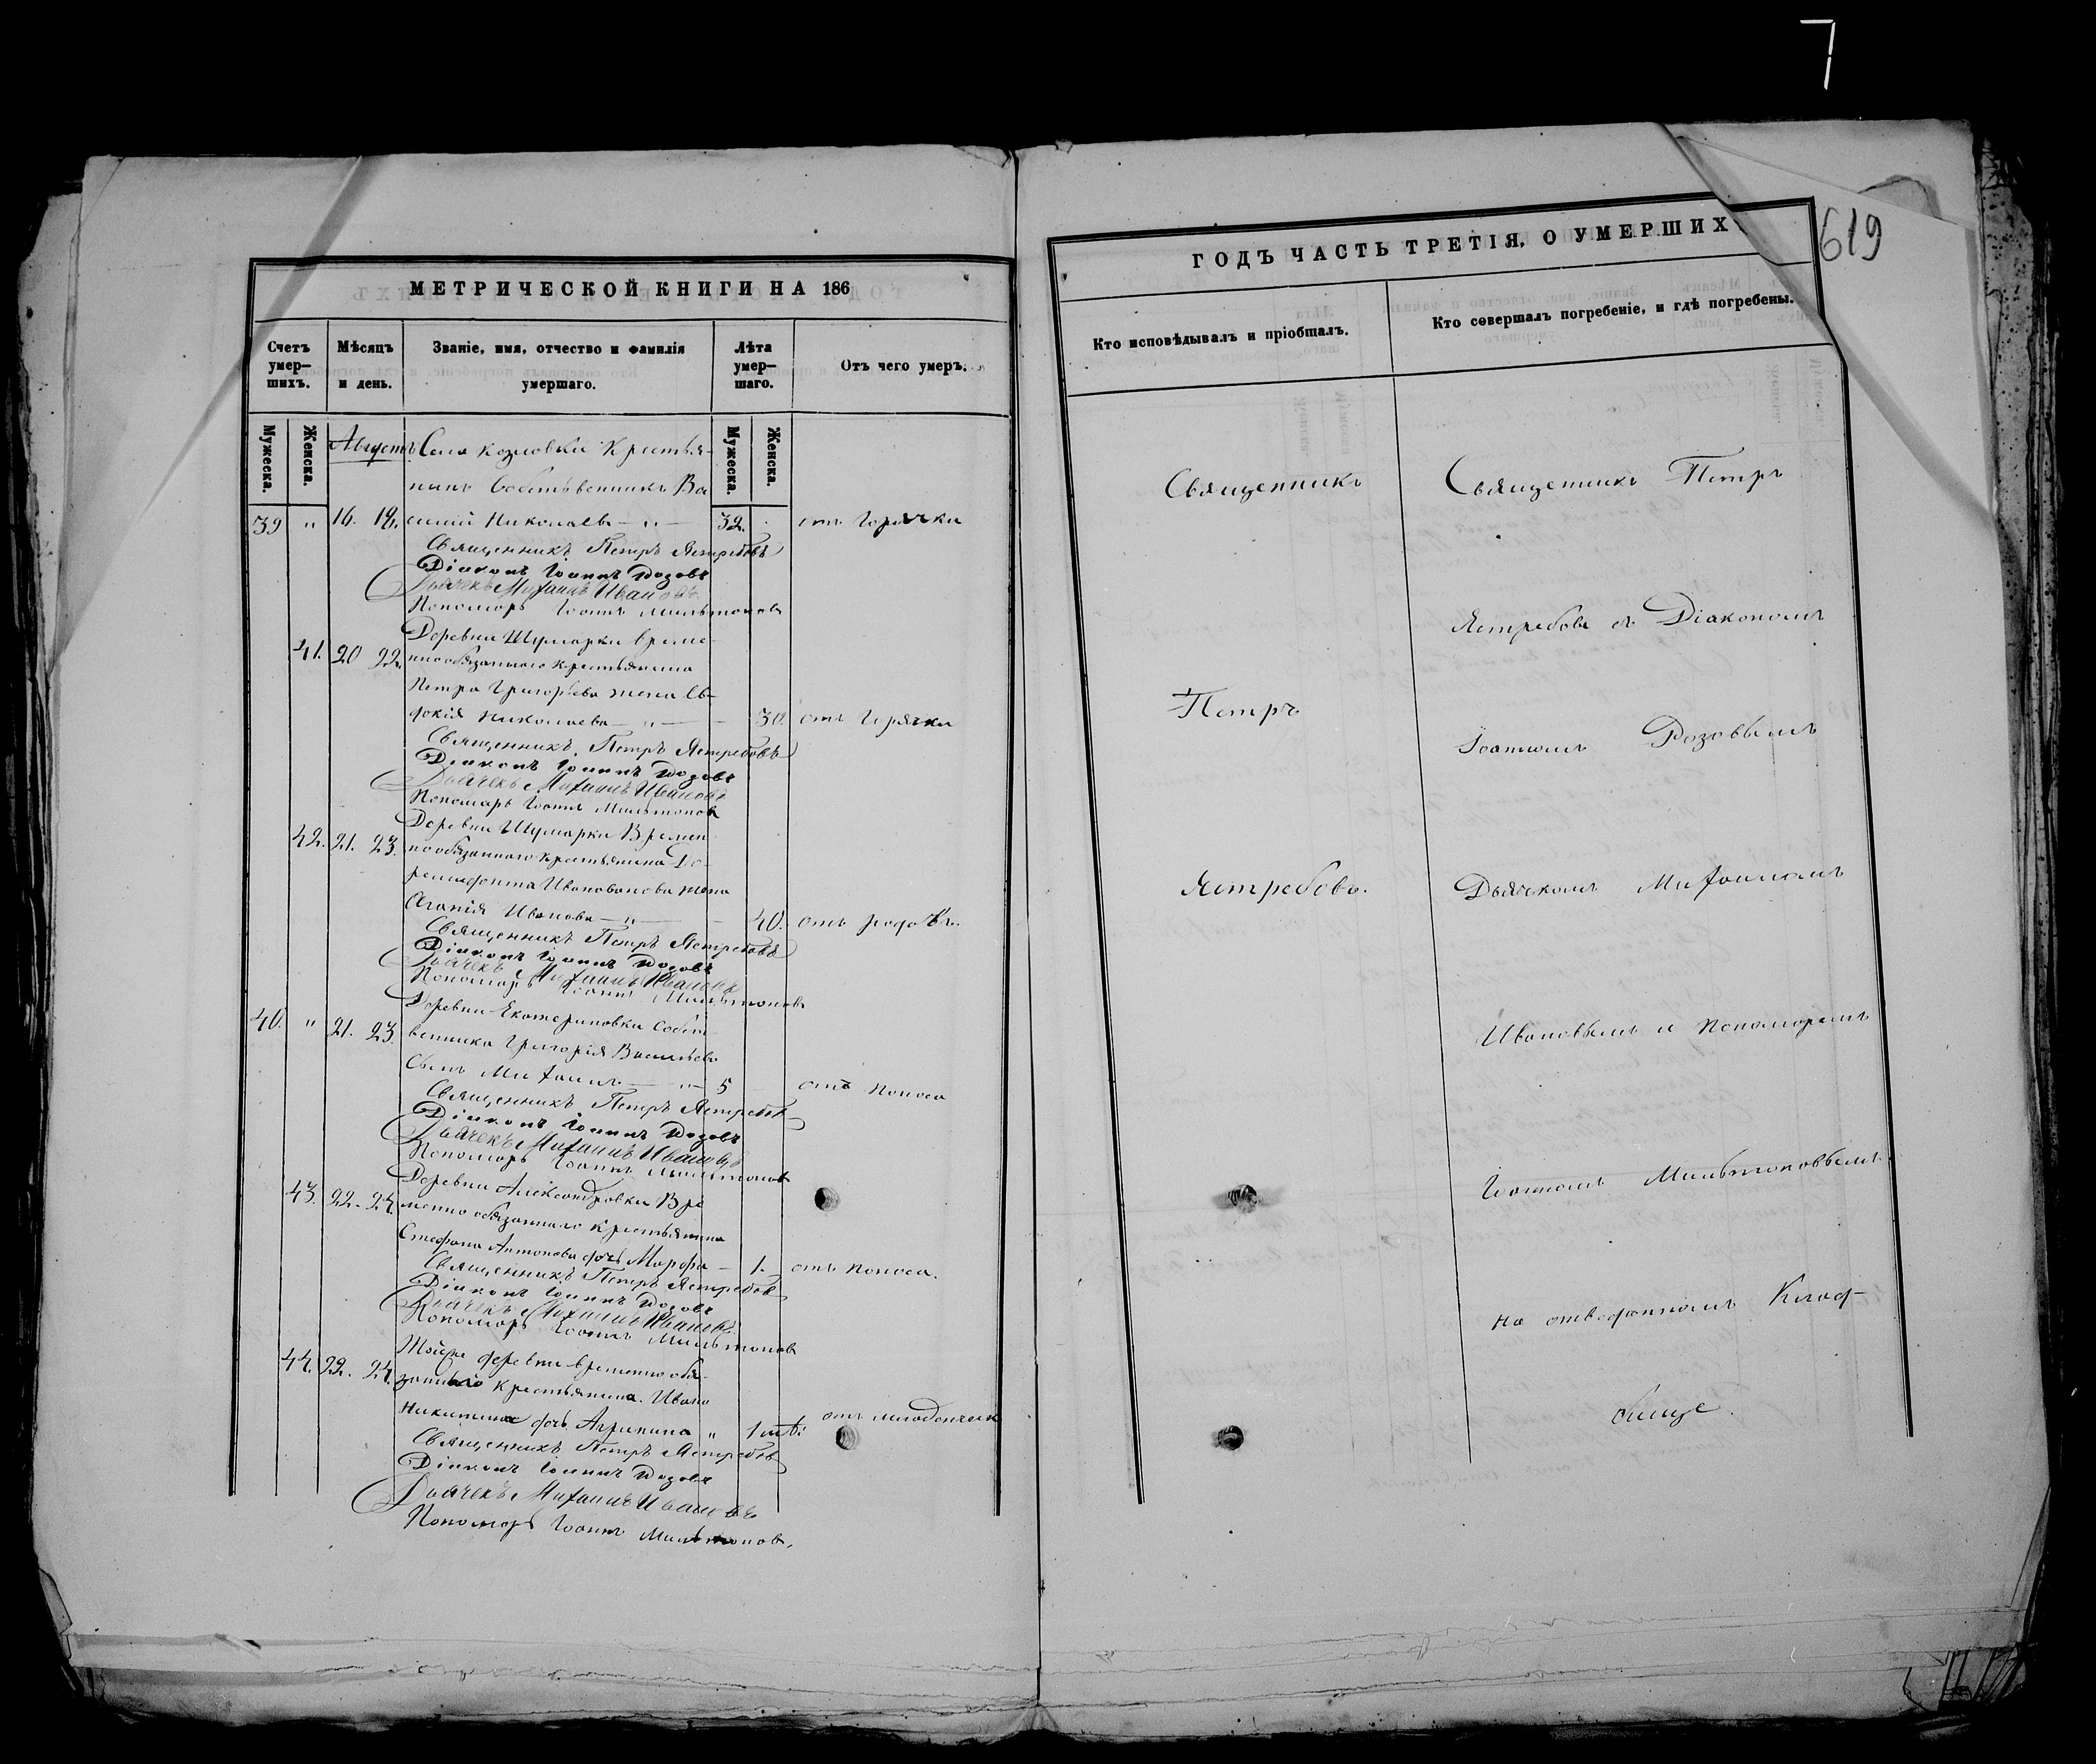 7
619
МЕТРИЧЕСКОЙ КНИГИ НА 186
Счетъ умер-шихъ.
Мѣсяцъ и день.
Званіе, имя, отчество и фамилія умершаго.
Лѣта умер-шаго.
Отъ чего умеръ.
Мужеска.
Женска.
Мужеска.
Женска.
Августъ Села Козловки Крестья-
нинъ Собственникъ Ва
39 " 16. 18. силій Николаевъ — " — 32. отъ Горячки
Священникъ Петръ Ястребовъ
Діаконъ Іоаннъ Розовъ
Дьячекъ Михаилъ Ивановъ
Пономарь Іоаннъ Мильтоновъ
Деревни Шумарки време-
41. 20 22. ннообязаннаго крестьянина
Петра Григорьева жена Ев-
докія Николаева — " — 30. отъ Горячки
Священникъ Петръ Ястребовъ
Діаконъ Іоаннъ Розовъ
Дьячекъ Михаилъ Ивановъ
Пономарь Іоаннъ Мильтоновъ
Деревни Шумарки Времен
42. 21. 23. нообязаннаго крестьянина До-
жена
Агапія Иванова — " — 40. отъ родовъ.
Священникъ Петръ Ястребовъ
Діаконъ Іоаннъ Розовъ
Дьячекъ Михаилъ Ивановъ
Пономарь Іоаннъ Мильтоновъ
Деревни Екатериновки Собст-
40. " 21. 23. венника Григорія Васильева
Сынъ Михаилъ — " — 5 отъ поноса
Священникъ Петръ Ястребовъ
Діаконъ Іоаннъ Розовъ
Дьячекъ Михаилъ Ивановъ
Пономарь Іоаннъ Мильтоновъ
Деревни Александровки Вре
43. 22. 24. менно обязаннаго крестьянина
Стефана Антонова дочь Марфа — 1. отъ поноса.
Священникъ Петръ Ястребовъ
Діаконъ Іоаннъ Розовъ
Дьячекъ Михаилъ Ивановъ
Пономарь Іоаннъ Мильтоновъ
Тойже деревни временно обя-
44. 22. 24. заннаго крестьянина Ивана
Никитина дочь Агрипина " 1 отъ младенческ
Священникъ Петръ Ястребовъ
Діаконъ Іоаннъ Розовъ
Дьячекъ Михаилъ Ивановъ
Пономарь Іоаннъ Мильтоновъ.
ГОДЪ ЧАСТЬ ТРЕТІЯ, О УМЕРШИХ
Кто исповѣдывалъ и пріобщалъ.
Кто совершалъ погребеніе, и гдѣ погребены.
Священникъ
Петръ
Ястребовъ.
Священникъ Петръ
Ястребовъ съ Діакономъ
Іоанномъ Розовымъ
Дьячкомъ Михаиломъ
Ивановымъ и Пономаремъ
Іоанномъ Мильтоновымъ
на отведенномъ Клад-
бище.